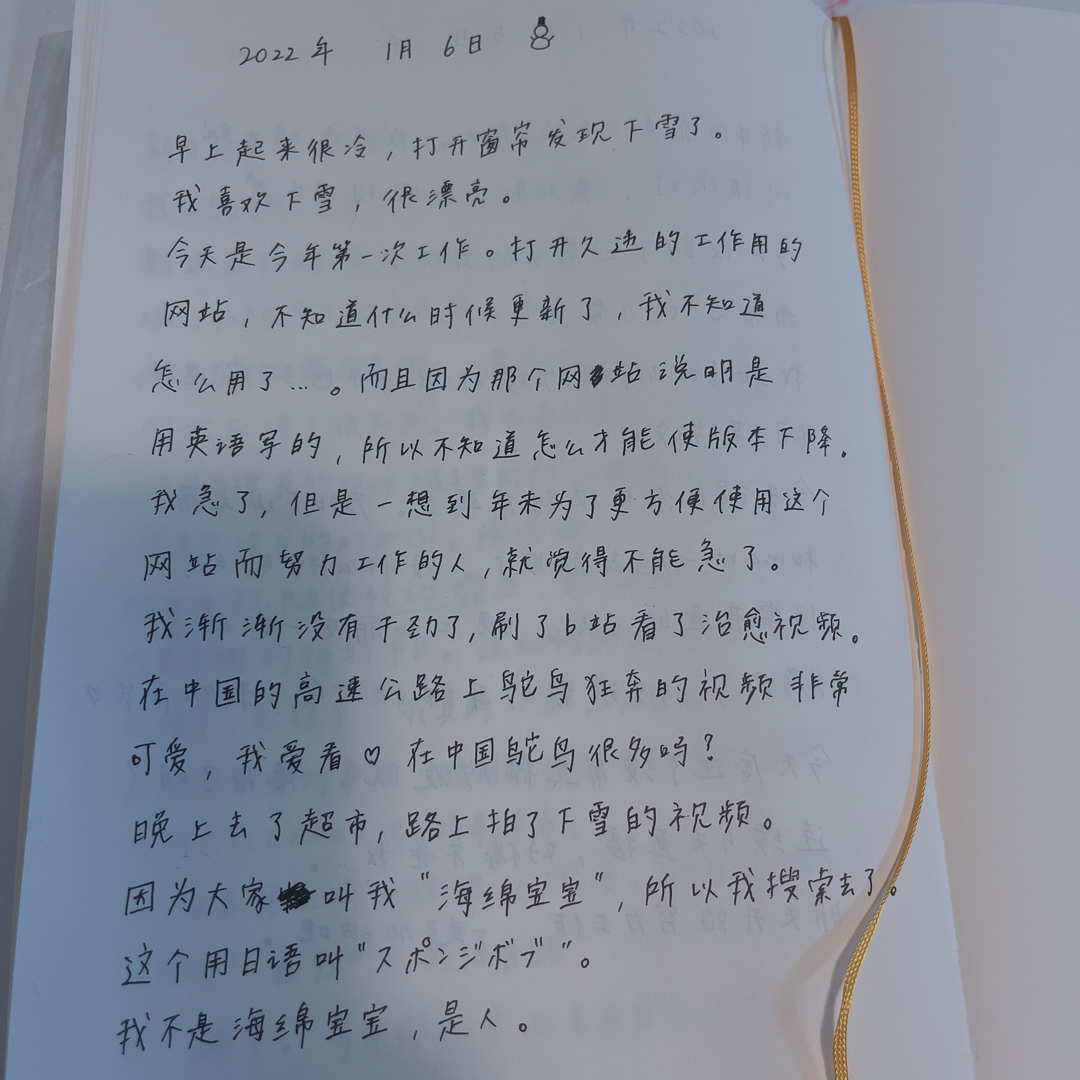 2022年 1月 6日
早上起来很冷，打开窗帘发现下雪了。
我喜欢下雪，很漂亮。
今天是今年第一次工作。打开久违的工作用的
网站，不知道什么时候更新了，我不知道
怎么用了…。而且因为那个网站说明是
用英语写的，所以不知道怎么才能使版本下降。
我急了，但是一想到年末为了更方便使用这个
网站而努力工作的人，就觉得不能急了。
我渐渐没有干劲了，刷了b站看了治愈视频。
在中国的高速公路上鸵鸟狂奔的视频非常
可爱，我爱看♡ 在中国鸵鸟很多吗？
晚上去了超市，路上拍了下雪的视频。
因为大家叫我“海绵宝宝”，所以我搜索去了。
这个用日语叫“スポンジボブ”。
我不是海绵宝宝，是人。